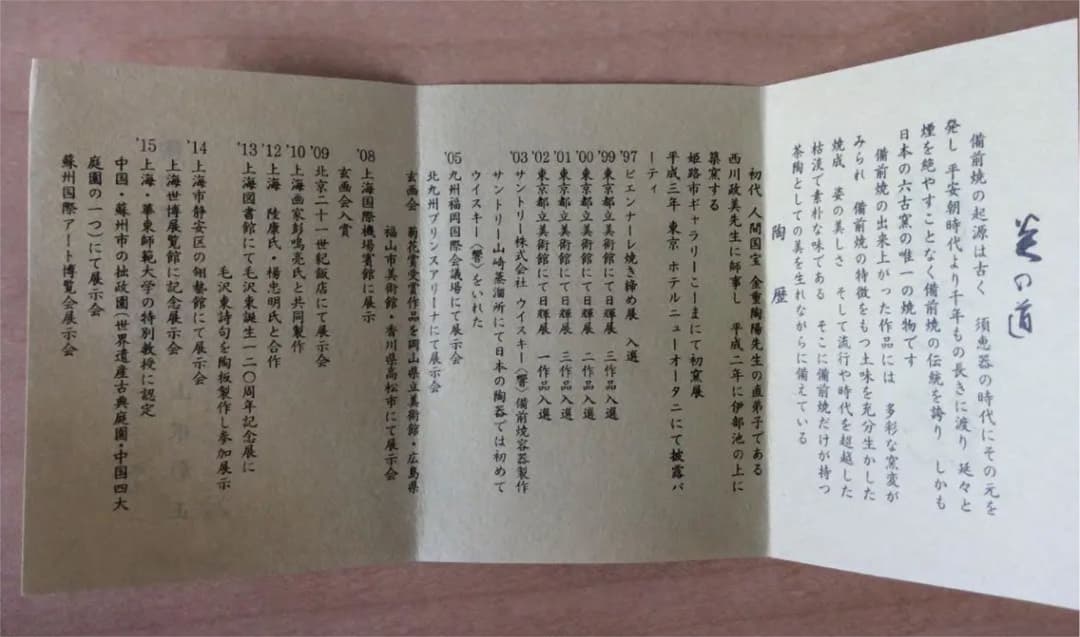 美の道
備前焼の起源は古く　須恵器の時代にその元を
発し　平安朝時代より千年もの長きに渡り　延々と
煙を絶やすことなく備前焼の伝統を誇り　しかも
日本の六古窯の唯一の焼物です
備前焼の出来上がった作品には　多彩な窯変が
みられ　備前焼の特徴をもつ土味を充分生かした
焼成　姿の美しさ　そして流行や時代を超越した
枯淡で素朴な味である　そこに備前焼だけが持つ
茶陶としての美を生れながらに備えている
陶　歴
初代　人間国宝　金重陶陽先生の直弟子である
西川政美先生に師事し　平成二年に伊部池の上に
築窯する
姫路市ギャラリーこーまにて初窯展
平成三年　東京　ホテルニューオータニにて披露パ
ーティ
'97 ビエンナーレ焼き締め展　入選
'99 東京都立美術館にて日輝展　三作品入選
'00 東京都立美術館にて日輝展　二作品入選
'01 東京都立美術館にて日輝展　三作品入選
'02 東京都立美術館にて日輝展　一作品入選
'03 サントリー株式会社　ウイスキー（響）備前焼容器製作
サントリー山崎蒸溜所にて日本の陶器では初めて
ウイスキー（響）をいれた
'05 九州福岡国際会議場にて展示会
北九州プリンスアリーナにて展示会
玄画会　菊花賞受賞作品を岡山県立美術館・広島県
福山市美術館・香川県高松市にて展示会
'08 上海国際機場賓館に展示
玄画会入賞
'09 北京二十一世紀飯店にて展示会
'10 上海画家彭鳴亮氏と共同製作
'12 上海　陸康氏・楊忠明氏と合作
'13 上海図書館にて毛沢東誕生一二〇周年記念展に
毛沢東詩句を陶板製作し参加展示
'14 上海市静安区の翎藝館にて展示会
上海世博展覧館に記念展示会
'15 上海・華東師範大学の特別教授に認定
中国・蘇州市の拙政園（世界遺産古典庭園・中国四大
庭園の一つ）にて展示会
蘇州国際アート博覧会展示会